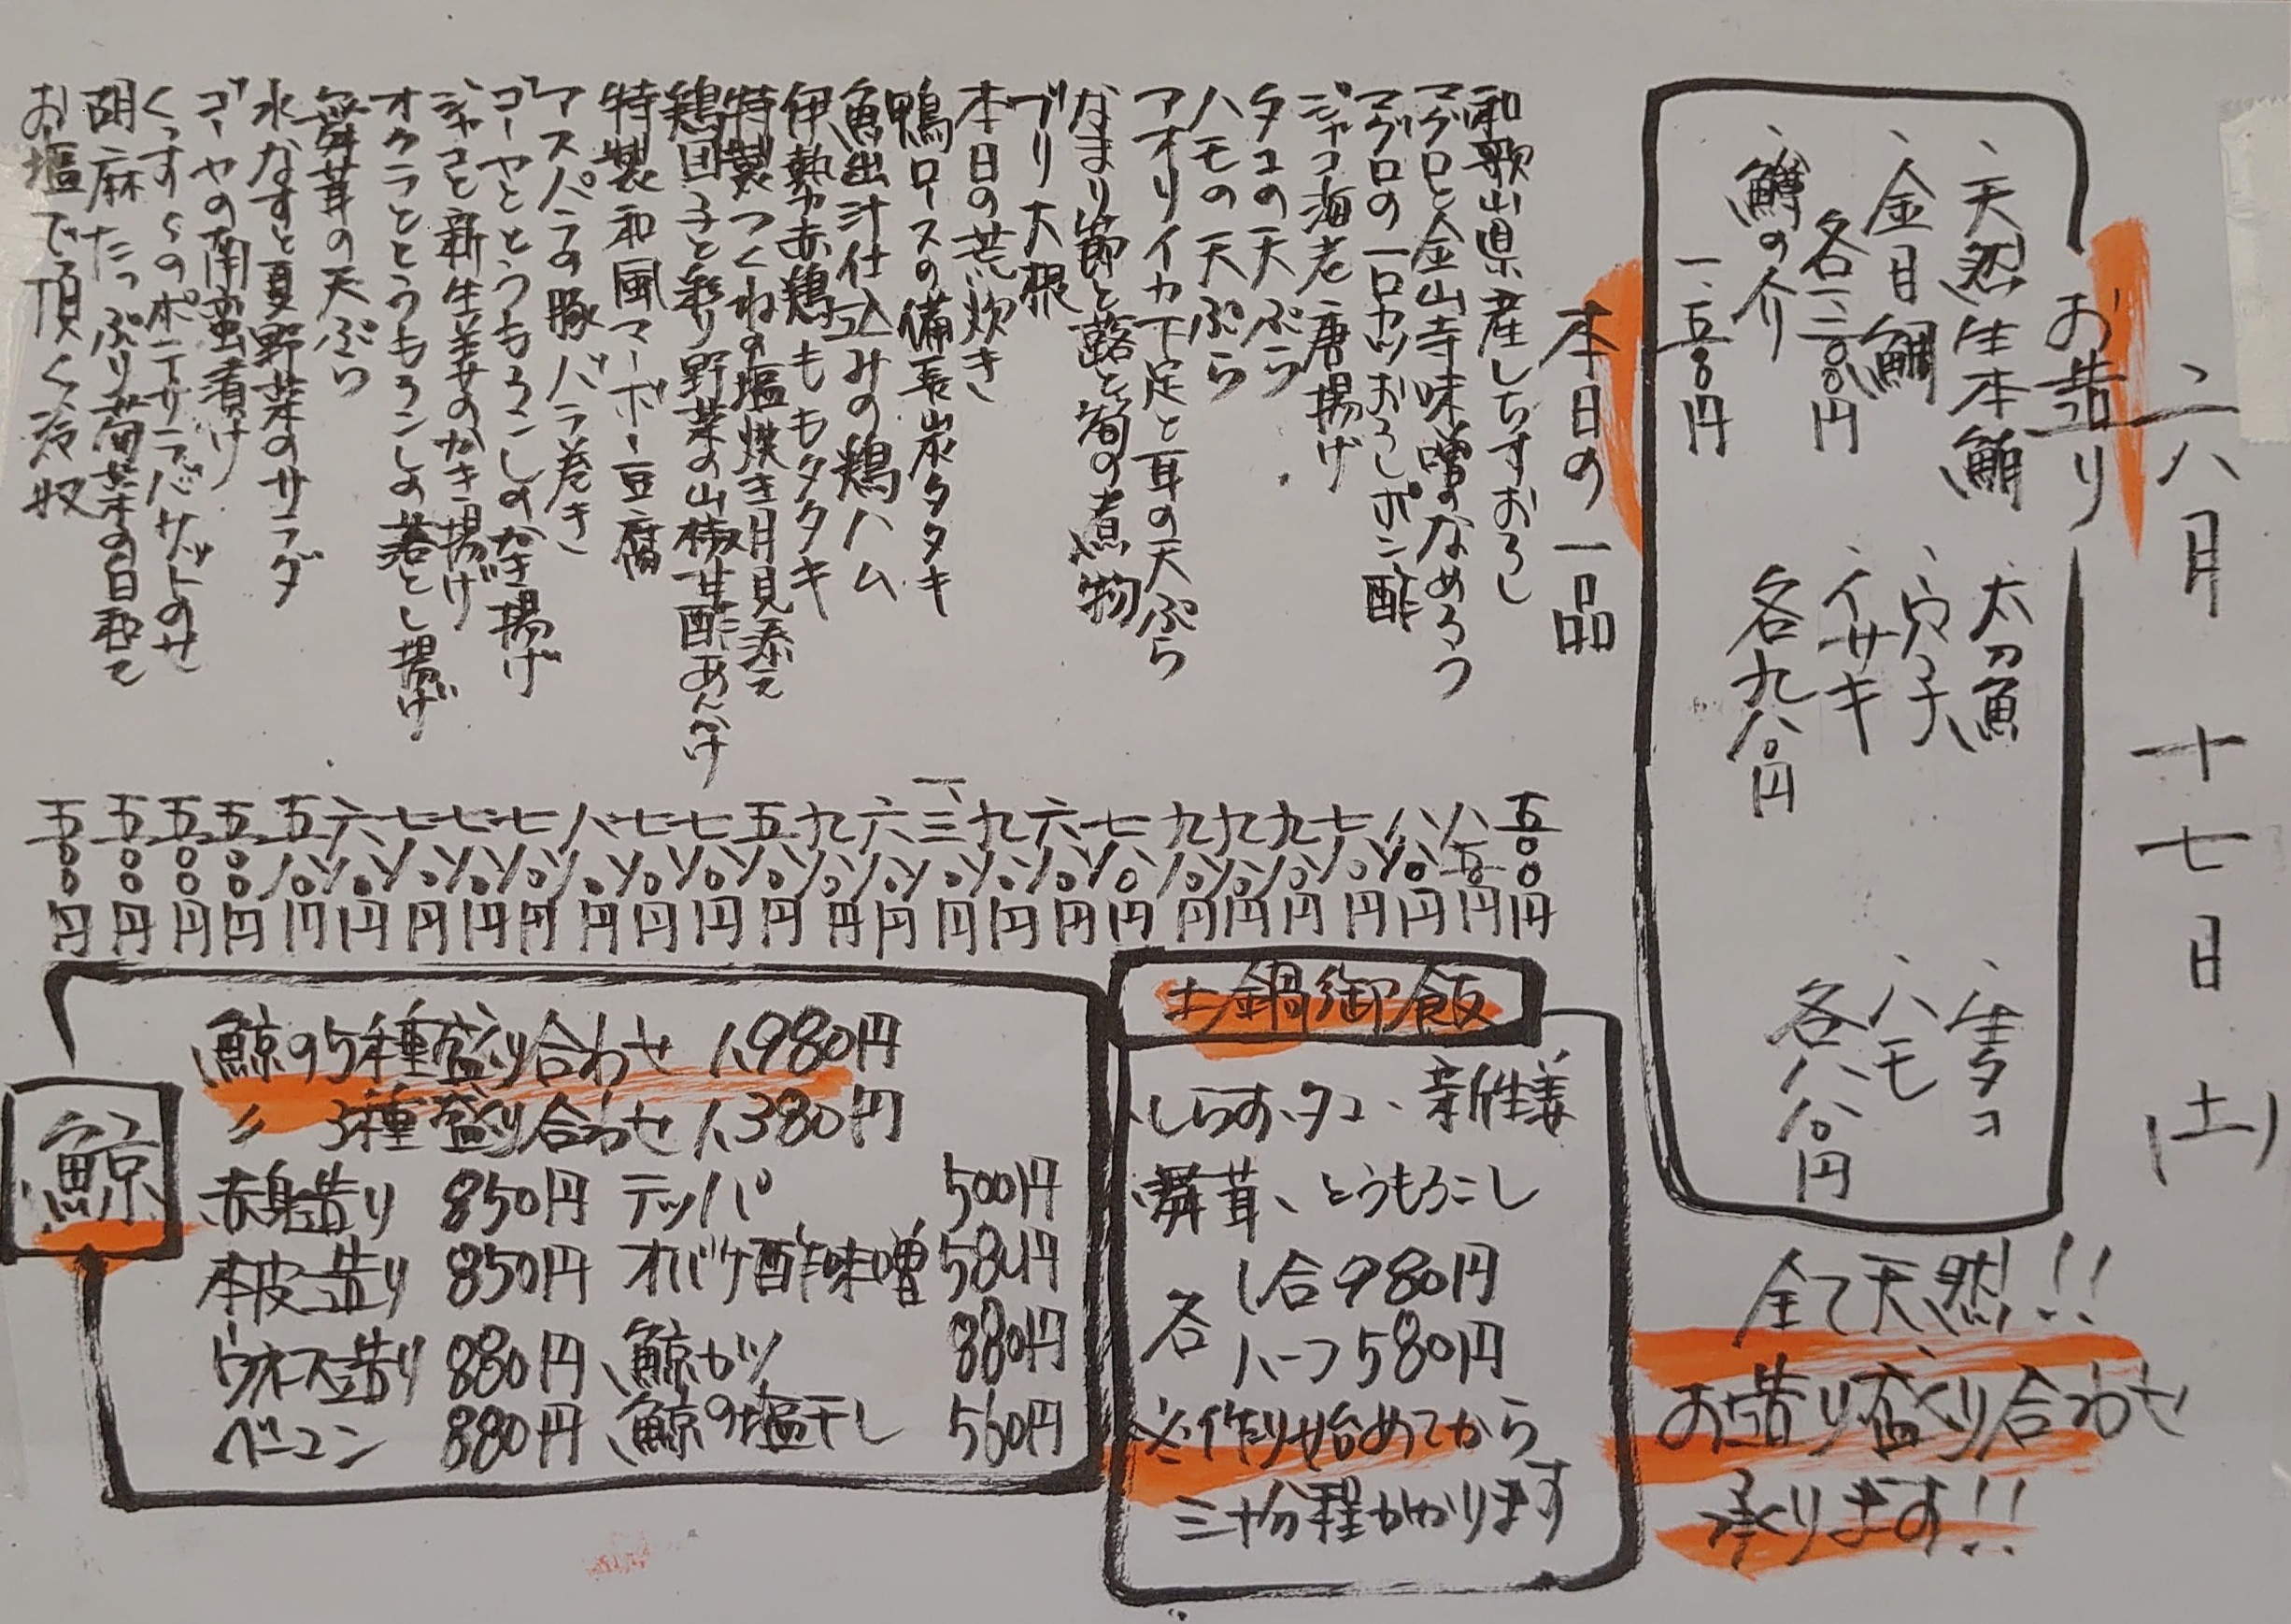 六月 十七日 (土)
お造り
、天然生本鮪
、金目鯛
各一、二八〇円
、鱒の介
一、五八〇円
、太刀魚
、穴子
、イサキ
各九八〇円
、生タコ
、ハモ
各八八〇円
全て天然!!
お造り盛り合わせ
承ります!!
本日の一品
和歌山県産しらすおろし 五〇〇円
マグロと金山寺味噌のなめろう 八五〇円
マグロの一口カツおろしポン酢 八八〇円
ジャコ海老唐揚げ 七八〇円
タコの天ぷら 九八〇円
ハモの天ぷら 九八〇円
アオリイカ下足と耳の天ぷら 九八〇円
なまり節と蕗と筍の煮物 七八〇円
ブリ大根 六八〇円
本日の荒炊き 九八〇円
鴨ロースの備長炭タタキ 一、三八〇円
魚出汁仕込みの鶏ハム 六八〇円
伊勢赤鶏ももタタキ 九八〇円
特製つくねの塩焼き月見添え 五八〇円
鶏団子と彩り野菜の山椒甘酢あんかけ 七八〇円
特製和風マーボー豆腐 七八〇円
アスパラの豚バラ巻き 八八〇円
ゴーヤととうもろこしのかき揚げ 七八〇円
ジャコと新生姜のかき揚げ 七八〇円
オクラととうもろこしの落とし揚げ 七八〇円
舞茸の天ぷら 六八〇円
水なすと夏野菜のサラダ 五八〇円
ゴーヤの南蛮漬け 五〇〇円
くずし〻のポテサラバケットのせ 五〇〇円
胡麻たっぷり菊菜の白和え 五〇〇円
お塩で頂く冷奴 五〇〇円
土鍋御飯
、しらす、タコ、新生姜
、舞茸、とうもろこし
各 1合980円
ハーフ580円
※作り始めてから
三十分程かかります
鯨
、鯨の5種盛り合わせ 1,980円
〃 3種盛り合わせ 1,380円
赤身造り 850円 テッパ 500円
本皮造り 850円 オバケ酢味噌 580円
ウネス造り 880円 、鯨カツ 880円
ベーコン 880円 、鯨の塩干し 560円